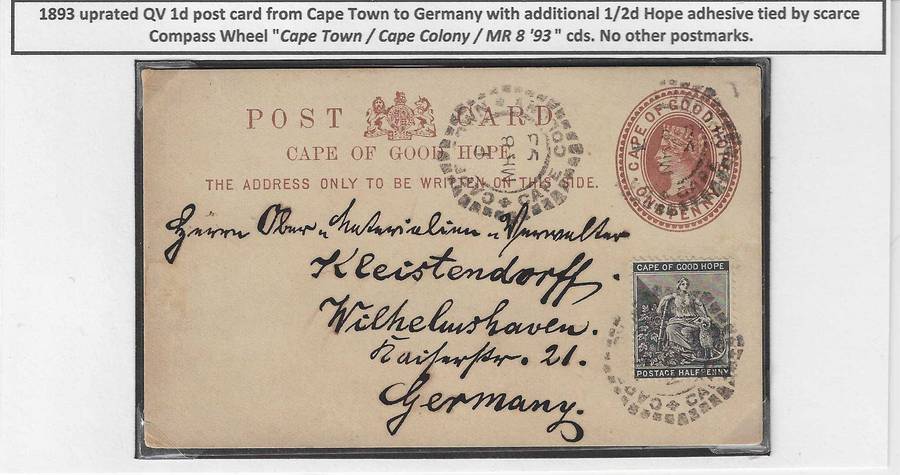 1893 uprated QV 1d post card from Cape Town to Germany with additional 1/2d Hope adhesive tied by scarce
Compass Wheel "Cape Town / Cape Colony / MR 8 '93" cds. No other postmarks.
POST CARD
CAPE OF GOOD HOPE
THE ADDRESS ONLY TO BE WRITTEN ON THIS SIDE.
CAPE OF GOOD HOPE
ONE PENNY
CAPE COLONY
MR 8
93
Herrn Ober u Materialien u Verwalter
Kleistendorff.
Wilhelmshaven.
Kaiserstr. 21.
Germany.
CAPE OF GOOD HOPE
POSTAGE HALFPENNY